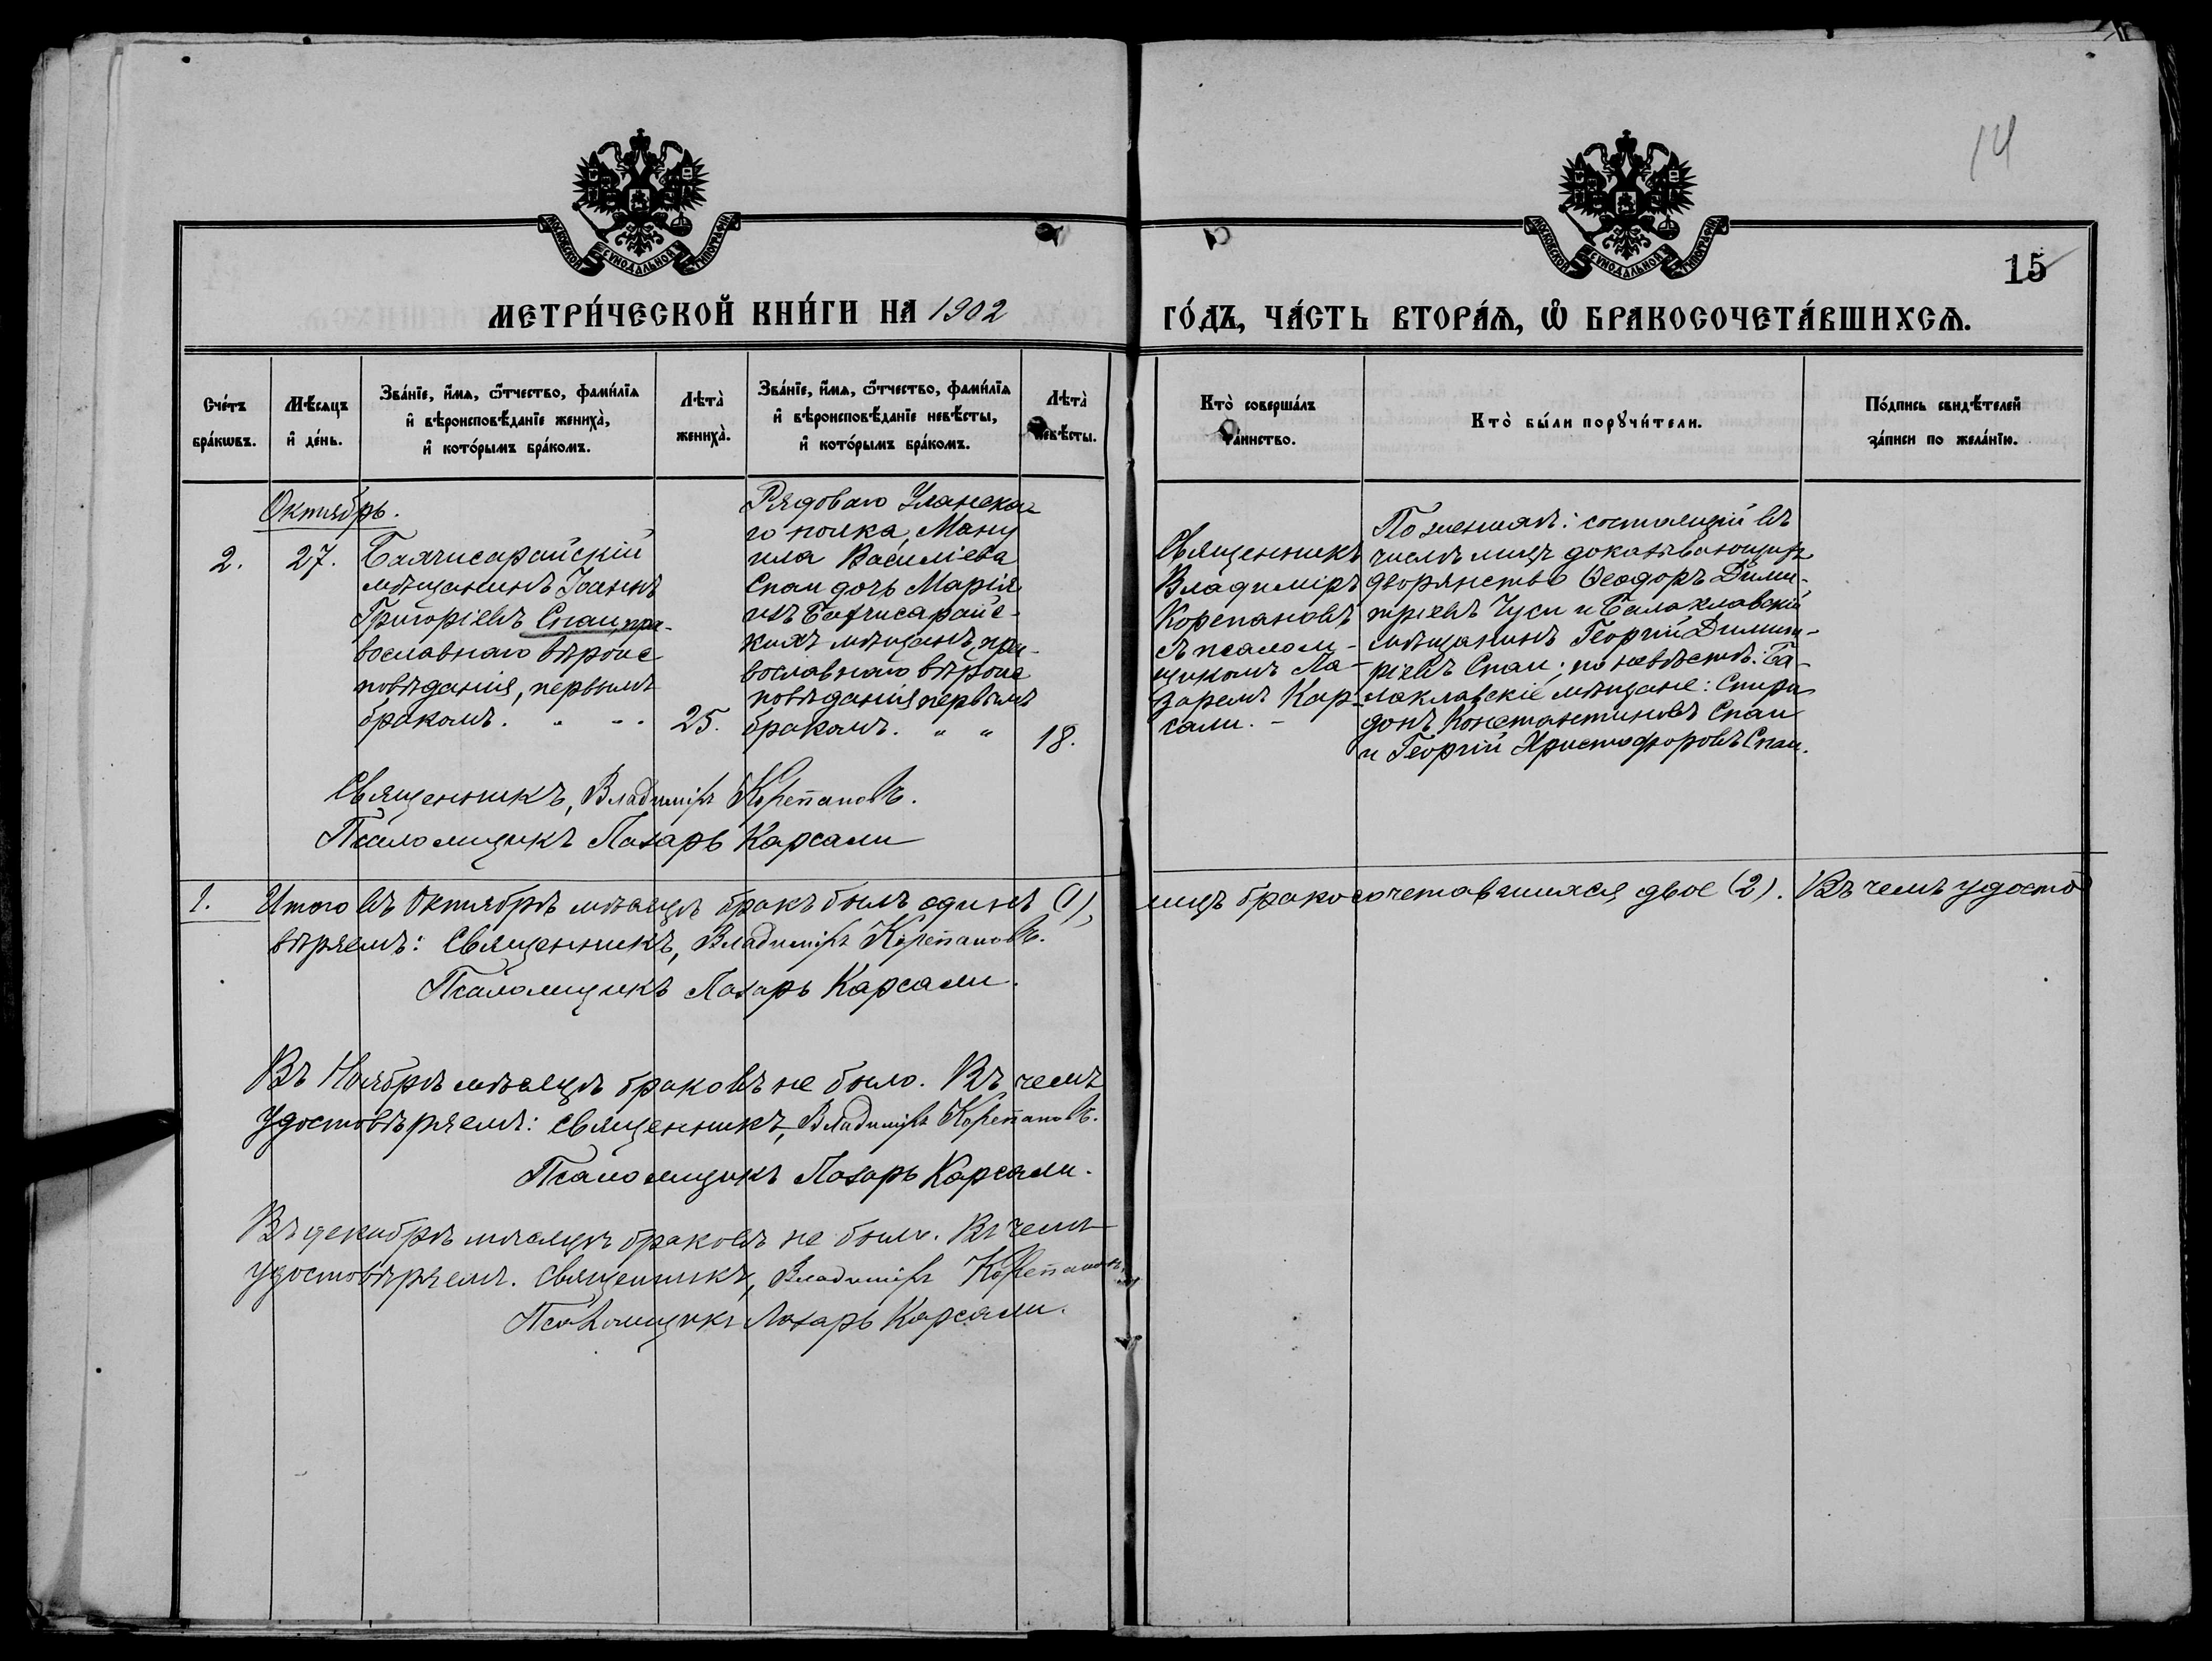 14
МОСКОВСКОЙ СѴНОДАЛЬНОЙ ТИПОГРАФІИ
МОСКОВСКОЙ СѴНОДАЛЬНОЙ ТИПОГРАФІИ
15
МЕТРИ́ЧЕСКОЙ КНИ́ГИ НА 1902
ГО́ДЪ, ЧА́СТЬ ВТОРА́Ѧ, Ѽ БРАКОСОЧЕТА́ВШИХСѦ.
Сче́тъ
бра́кѡвъ.
Мѣ́сяцъ
и҆ де́нь.
Зва́нїе, и҆́мѧ, ѻ҆́тчество, фами́лїѧ
и҆ вѣроисповѣ́данїе жениха̀,
и҆ кото́рымъ бра́комъ.
Лѣта̀
жениха̀.
Зва́нїе, и҆́мѧ, ѻ҆́тчество, фами́лїѧ
и҆ вѣроисповѣ́данїе невѣ́сты,
и҆ кото́рымъ бра́комъ.
Лѣта̀
невѣ́сты.
Кто̀ соверша́лъ
таинство.
Кто̀ бы́ли порꙋчи́тели.
По́дпись свидѣ́телей
за́писи по жела́нїю.
Октябрь.
2.
27.
Бахчисарайскій
мѣщанинъ Іоаннъ
Григоріевъ Спаи, пра-
вославнаго вѣроис
повѣданія, первымъ
бракомъ. " - -
25.
Рядоваго Уланска-
го полка, Ману
ила Василіева
Спаи дочь Марія
изъ Бахчисарайс-
кихъ мѣщанъ, пра-
вославнаго вѣроис
повѣданія первымъ
бракомъ. " "
18.
Священникъ
Владиміръ
Корепановъ
съ псалом-
щикомъ Ла-
заремъ Кар-
сали. -
По женихѣ: состоящій въ
числѣ лицъ доказывающихъ
дворянство Ѳеодоръ Дими-
тріевъ Чуси и Балаклавскій
мѣщанинъ Георгій Димит-
ріевъ Спаи; по невѣстѣ: Ба-
лаклавскіе мѣщане: Спири
донъ Константиновъ Спаи
и Георгій Христофоровъ Спаи.
Священникъ, Владиміръ Корепановъ.
Псаломщикъ Лазарь Карсали
1. Итого въ Октябрѣ мѣсяцѣ бракъ былъ одинъ (1), лицъ бракосочетавшихся двое (2). Въ чемъ удосто
вѣряемъ: Священникъ, Владиміръ Корепановъ.
Псаломщикъ Лазарь Карсали.
Въ Ноябрѣ мѣсяцѣ браковъ не было. Въ чемъ
удостовѣряемъ: Священникъ, Владиміръ Корепановъ.
Псаломщикъ Лазарь Карсали.
Въ декабрѣ мѣсяцѣ браковъ не было. Въ чемъ
удостовѣряемъ. Священникъ, Владиміръ Корепановъ.
Псаломщикъ Лазарь Карсали.